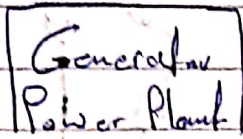 Generator
Power Plant